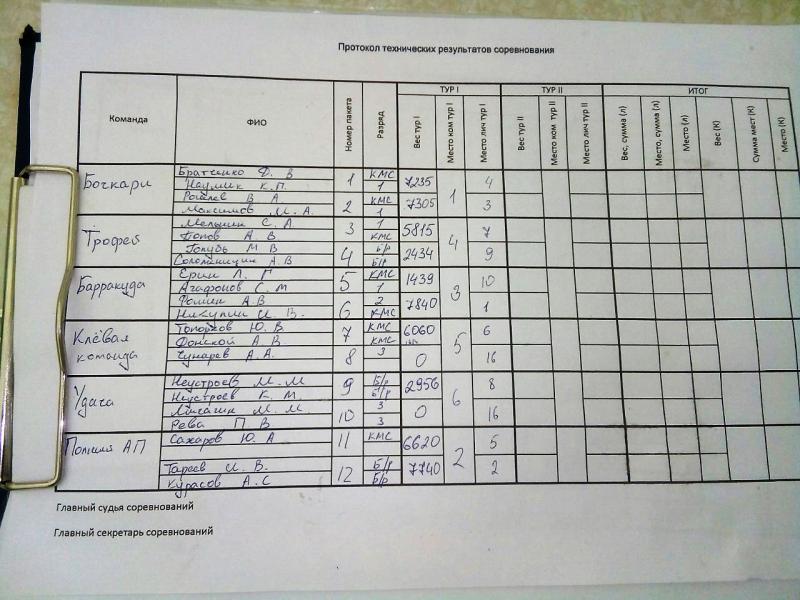 Протокол технических результатов соревнования
ТУР I ТУР II ИТОГ
Команда ФИО Номер пакета Разряд Вес тур I Место ком тур I Место лич тур I Вес тур II Место ком тур II Место лич тур II Вес, сумма (л) Место, сумма (л) Место (л) Вес (К) Сумма мест (К) Место (К)
Бочкари Братченко Ф. В 1 КМС 7235 1 4
Наумик К.П. 1
В А 2 КМС 7305 3
Максимов М. А. 1
Трофей Мельшин С. А 3 1 5815 4 7
Попов А В КМС
Голубь М В 4 Б/р 2434 9
А.В Б/р
Барракуда Ерин Л. Г 5 КМС 1439 3 10
Агафонов С. М 1
Фомин А.В 6 2 7840 1
Никулин И. В. КМС
Клёвая команда Ю. В. 7 КМС 6060 5 6
Фонской А В. КМС
Чунарев А.А. 8 3 0 16
Удача Неустроев М. М 9 Б/р 2956 6 8
Неустроев К. М. Б/р
М. М. 10 3 0 16
Рева П В 3
АП Сахаров Ю. А 11 КМС 6620 2 5
Тареев И. В. 12 Б/р 7740 2
Курасов А. С Б/р
Главный судья соревнований
Главный секретарь соревнований